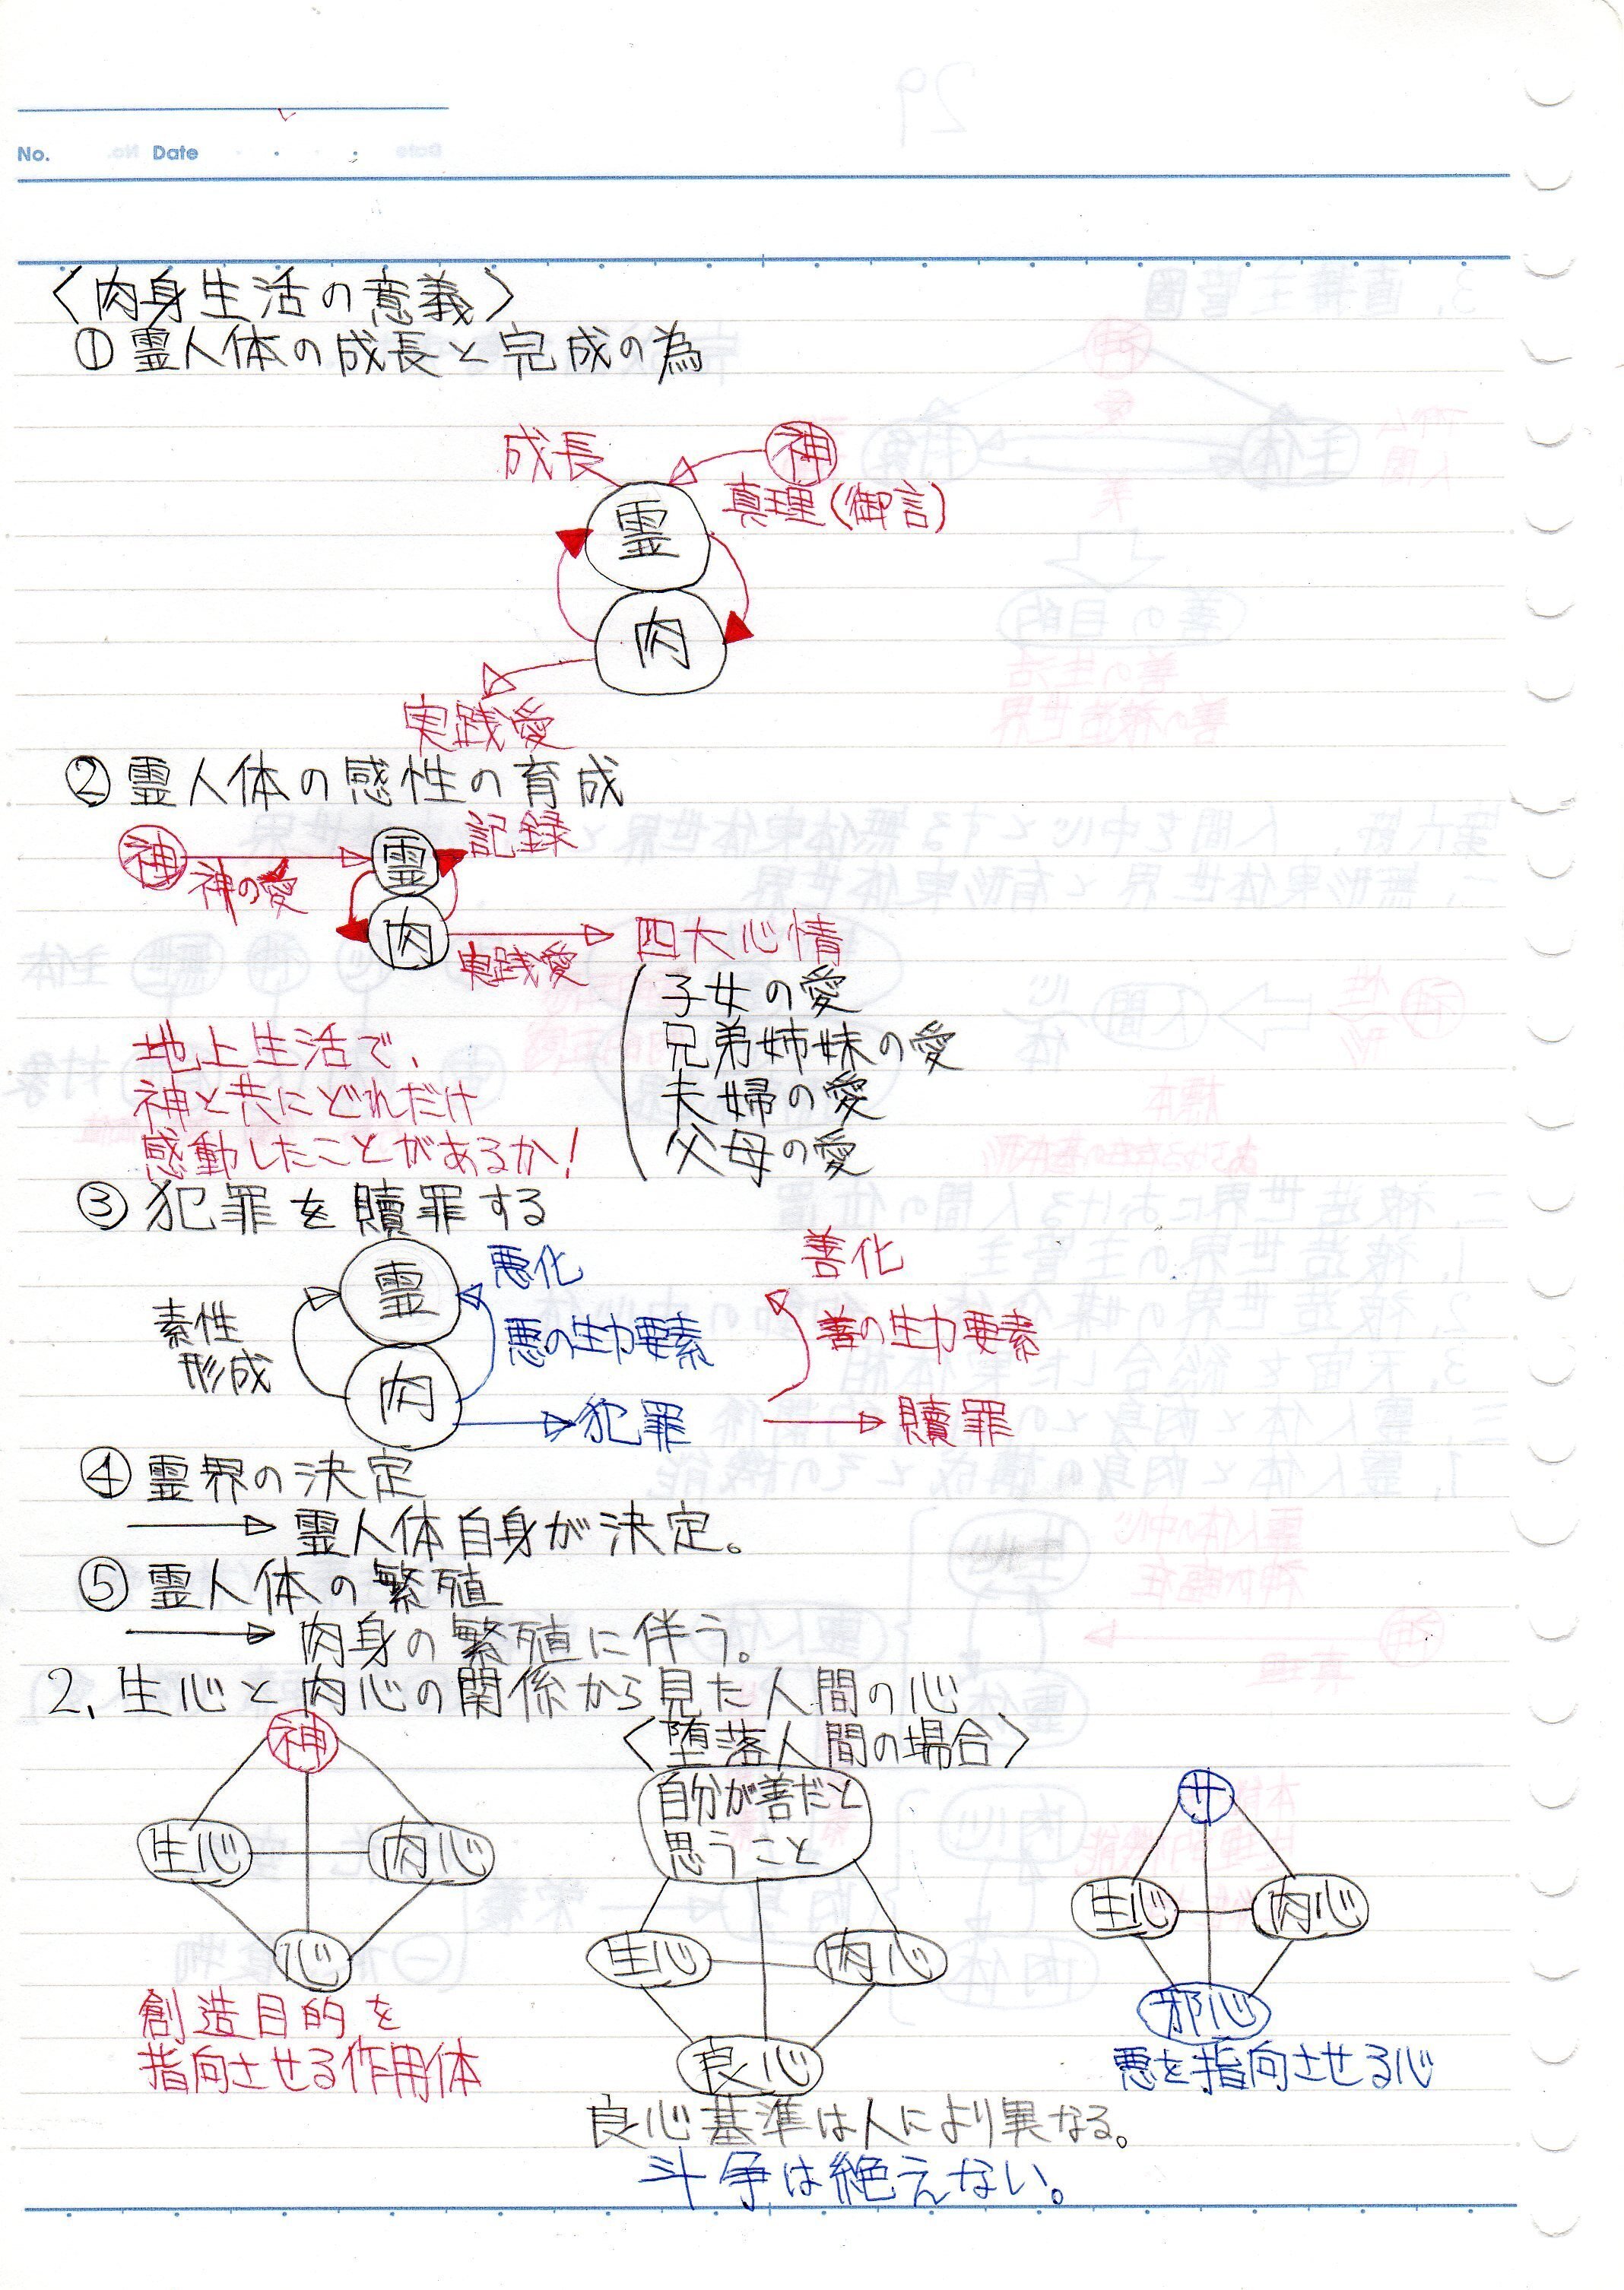 No.
Date
〈肉身生活の意義〉
①霊人体の成長と完成の為
成長
神
真理(御言)
霊
肉
実践愛
②霊人体の感性の育成
神
神の愛
霊
記録
肉
実践愛
四大心情
子女の愛
兄弟姉妹の愛
夫婦の愛
父母の愛
地上生活で、
神と共にどれだけ
感動したことがあるか!
③犯罪を贖罪する
霊
悪化
善化
素性
形成
悪の生力要素
善の生力要素
肉
犯罪
贖罪
④霊界の決定
→霊人体自身が決定。
⑤霊人体の繁殖
→肉身の繁殖に伴う。
2、生心と肉心の関係から見た人間の心
神
生心
肉心
心
創造目的を
指向させる作用体
〈堕落人間の場合〉
自分が善だと
思うこと
生心
肉心
良心
良心基準は人により異なる。
斗争は絶えない。
サ
生心
肉心
邪心
悪を指向させる心